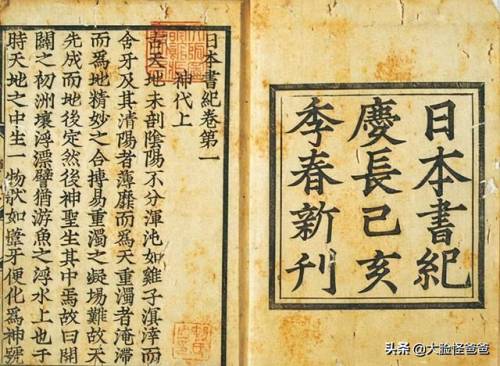 日本書紀
慶長己亥
季春新刊
日本書紀卷第一
神代上
古天地未剖陰陽不分渾沌如雞子溟涬而
含牙及其清陽者薄靡而爲天重濁者淹滯
而爲地精妙之合搏易重濁之凝場難故天
先成而地後定然後神聖生其中焉故曰開
闢之初洲壤浮漂譬猶游魚之浮水上也于
時天地之中生一物狀如葦牙便化爲神號
头条 @大脸怪爸爸